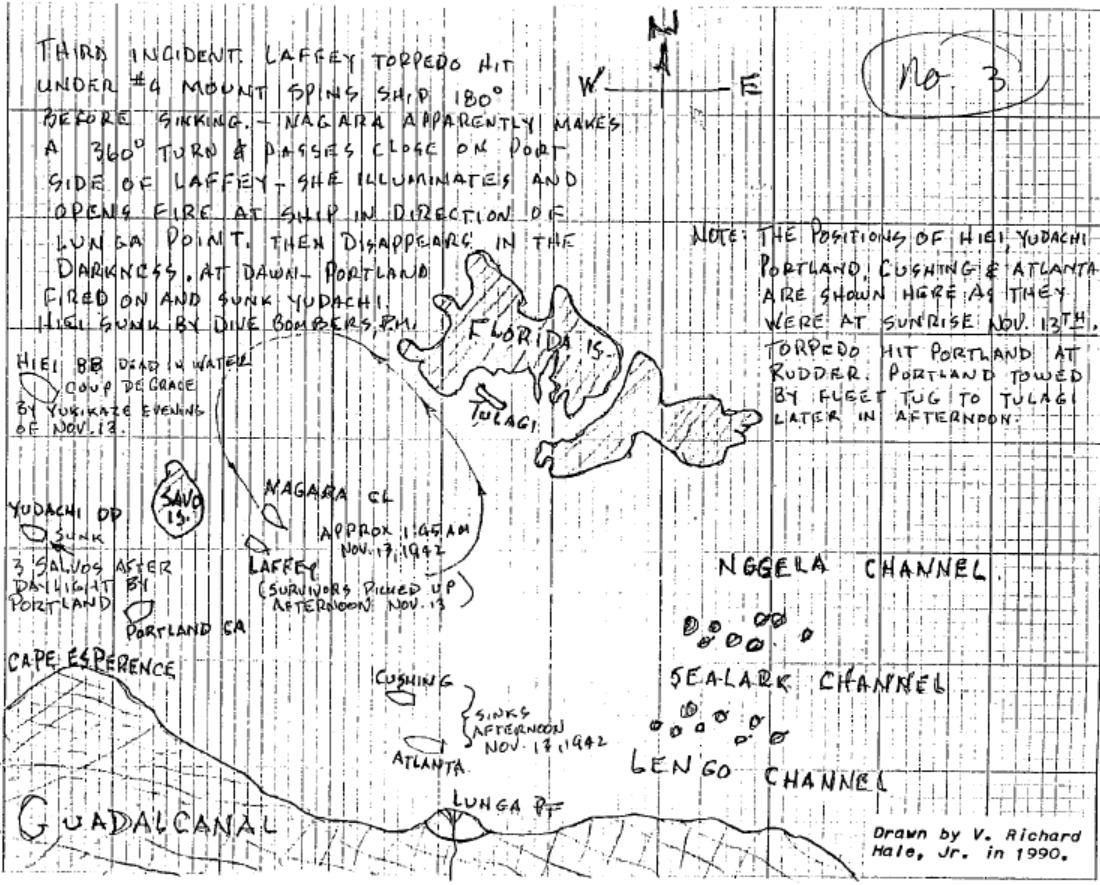 THIRD INCIDENT. LAFFEY TORPEDO HIT
UNDER #4 MOUNT SPINS SHIP 180°
BEFORE SINKING. - NAGARA APPARENTLY MAKES
A 360° TURN & PASSES CLOSE ON PORT
SIDE OF LAFFEY - SHE ILLUMINATES AND
OPENS FIRE AT SHIP IN DIRECTION OF
LUNGA POINT. THEN DISAPPEARS IN THE
DARKNESS. AT DAWN - PORTLAND
FIRED ON AND SUNK YUDACHI.
HIEI SUNK BY DIVE BOMBERS P.M.
N
W E
No. 3
NOTE: THE POSITIONS OF HIEI, YUDACHI
PORTLAND, CUSHING & ATLANTA
ARE SHOWN HERE AS THEY
WERE AT SUNRISE NOV. 13TH.
TORPEDO HIT PORTLAND AT
RUDDER. PORTLAND TOWED
BY FLEET TUG TO TULAGI
LATER IN AFTERNOON.
HIEI BB DEAD IN WATER
COUP DE GRACE
BY YUKIKAZE EVENING
OF NOV. 13.
FLORIDA IS.
TULAGI
SAVO
IS.
NAGARA CL
APPROX 1:45 AM
NOV. 13, 1942
LAFFEY
(SURVIVORS PICKED UP
AFTERNOON NOV. 13)
YUDACHI DD
SUNK
3 SALVOS AFTER
DAYLIGHT BY
PORTLAND
PORTLAND CA
CAPE ESPERENCE
NGGELA CHANNEL
SEALARK CHANNEL
LENGO CHANNEL
CUSHING
SINKS
AFTERNOON
NOV. 13, 1942
ATLANTA
LUNGA PT
GUADALCANAL
Drawn by V. Richard
Hale, Jr. in 1990.